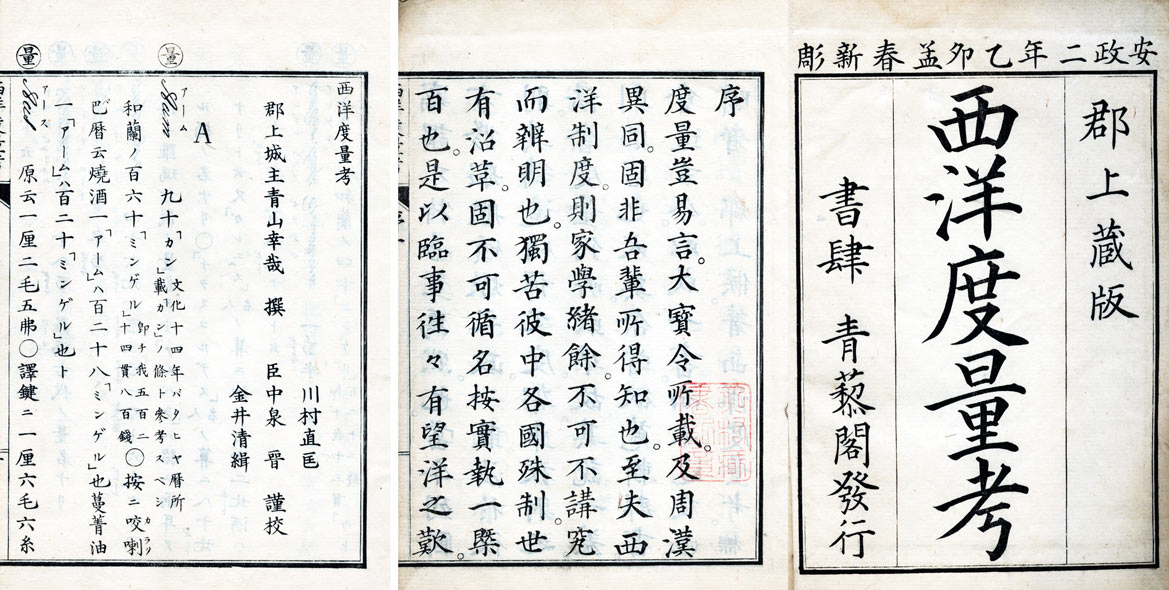 安政二年乙卯孟春新彫
郡上蔵版
西洋度量考
書肆 青藜閣發行
序
度量豈易言。大寶令所載。及周漢
異同。固非吾輩所得知也。至夫西
洋制度。則家學緒餘。不可不講究
而辨明也。獨苦彼中各國殊制。世
有沿革。固不可循名按實執一槩
百也。是以臨事往々有望洋之歎。
西洋度量考
川村直匡
郡上城主青山幸哉 撰 臣中泉 晉 謹校
金井清緝
A
量
アーム
九十「カン」 文化十四年バタヒヤ暦所
載「カン」ノ條ト參考スベシ
和蘭ノ百六十「ミンゲル」 卽チ我五百二
十四貫八百錢 ○按ニ咬喇
カラッ
巴暦云燒酒一「アーム」ハ百二十八「ミンゲル」也蔓菁油
一「アーム」ハ百二十「ミンゲル」也ト
量
アース
原云一厘二毛五弗○譯鍵ニ一厘六毛六糸